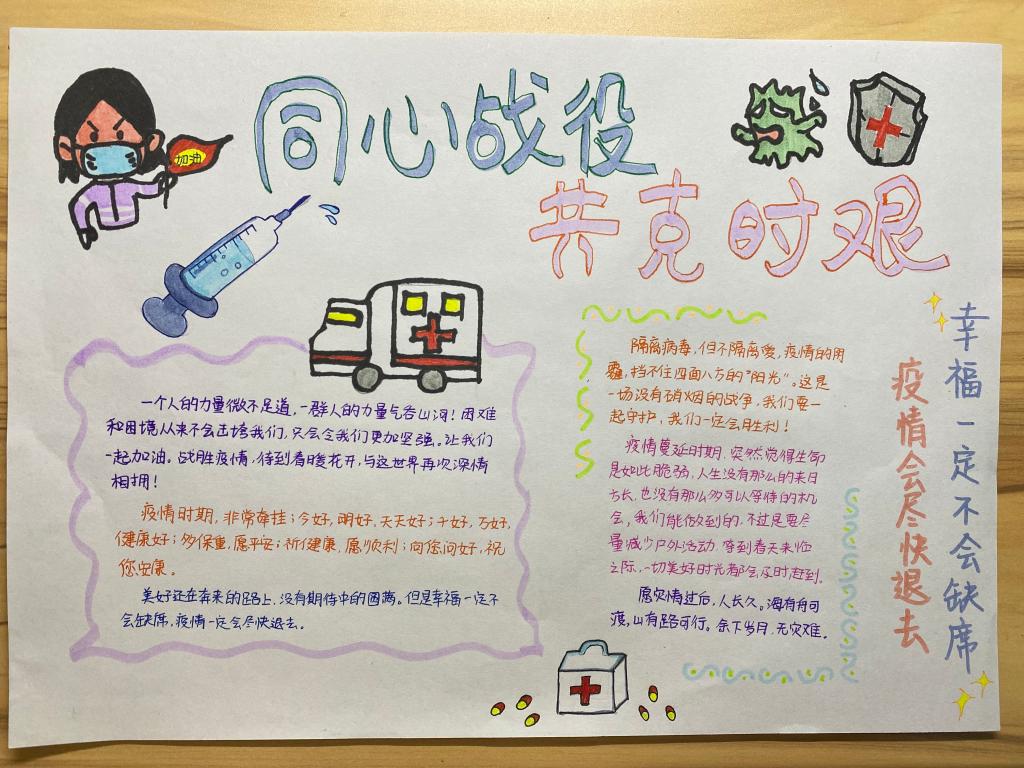 加油
同心战役
共克时艰
一个人的力量微不足道,一群人的力量气吞山河!困难
和困境从来不会击垮我们,只会令我们更加坚强。让我们
一起加油。战胜疫情,待到春暖花开,与这世界再次深情
相拥!
疫情时期,非常牵挂;今好,明好,天天好;千好,万好,
健康好;多保重,愿平安;祈健康,愿顺利;向您问好,祝
您安康。
美好还在奔来的路上,没有期待中的圆满。但是幸福一定不
会缺席,疫情一定会尽快退去。
隔离病毒,但不隔离爱,疫情的阴
霾,挡不住四面八方的"阳光"。这是
一场没有硝烟的战争,我们要一
起守护,我们一定会胜利!
疫情蔓延时期,突然觉得生命
是如此脆弱,人生没有那么的来日
方长,也没有那么多可以等待的机
会,我们能做到的,不过是要尽
量减少户外活动,等到春天来临
之际,一切美好时光都会及时赶到。
愿灾情过后,人长久。海有舟可
渡,山有路可行。余下岁月,无灾难。
幸福一定不会缺席
疫情会尽快退去